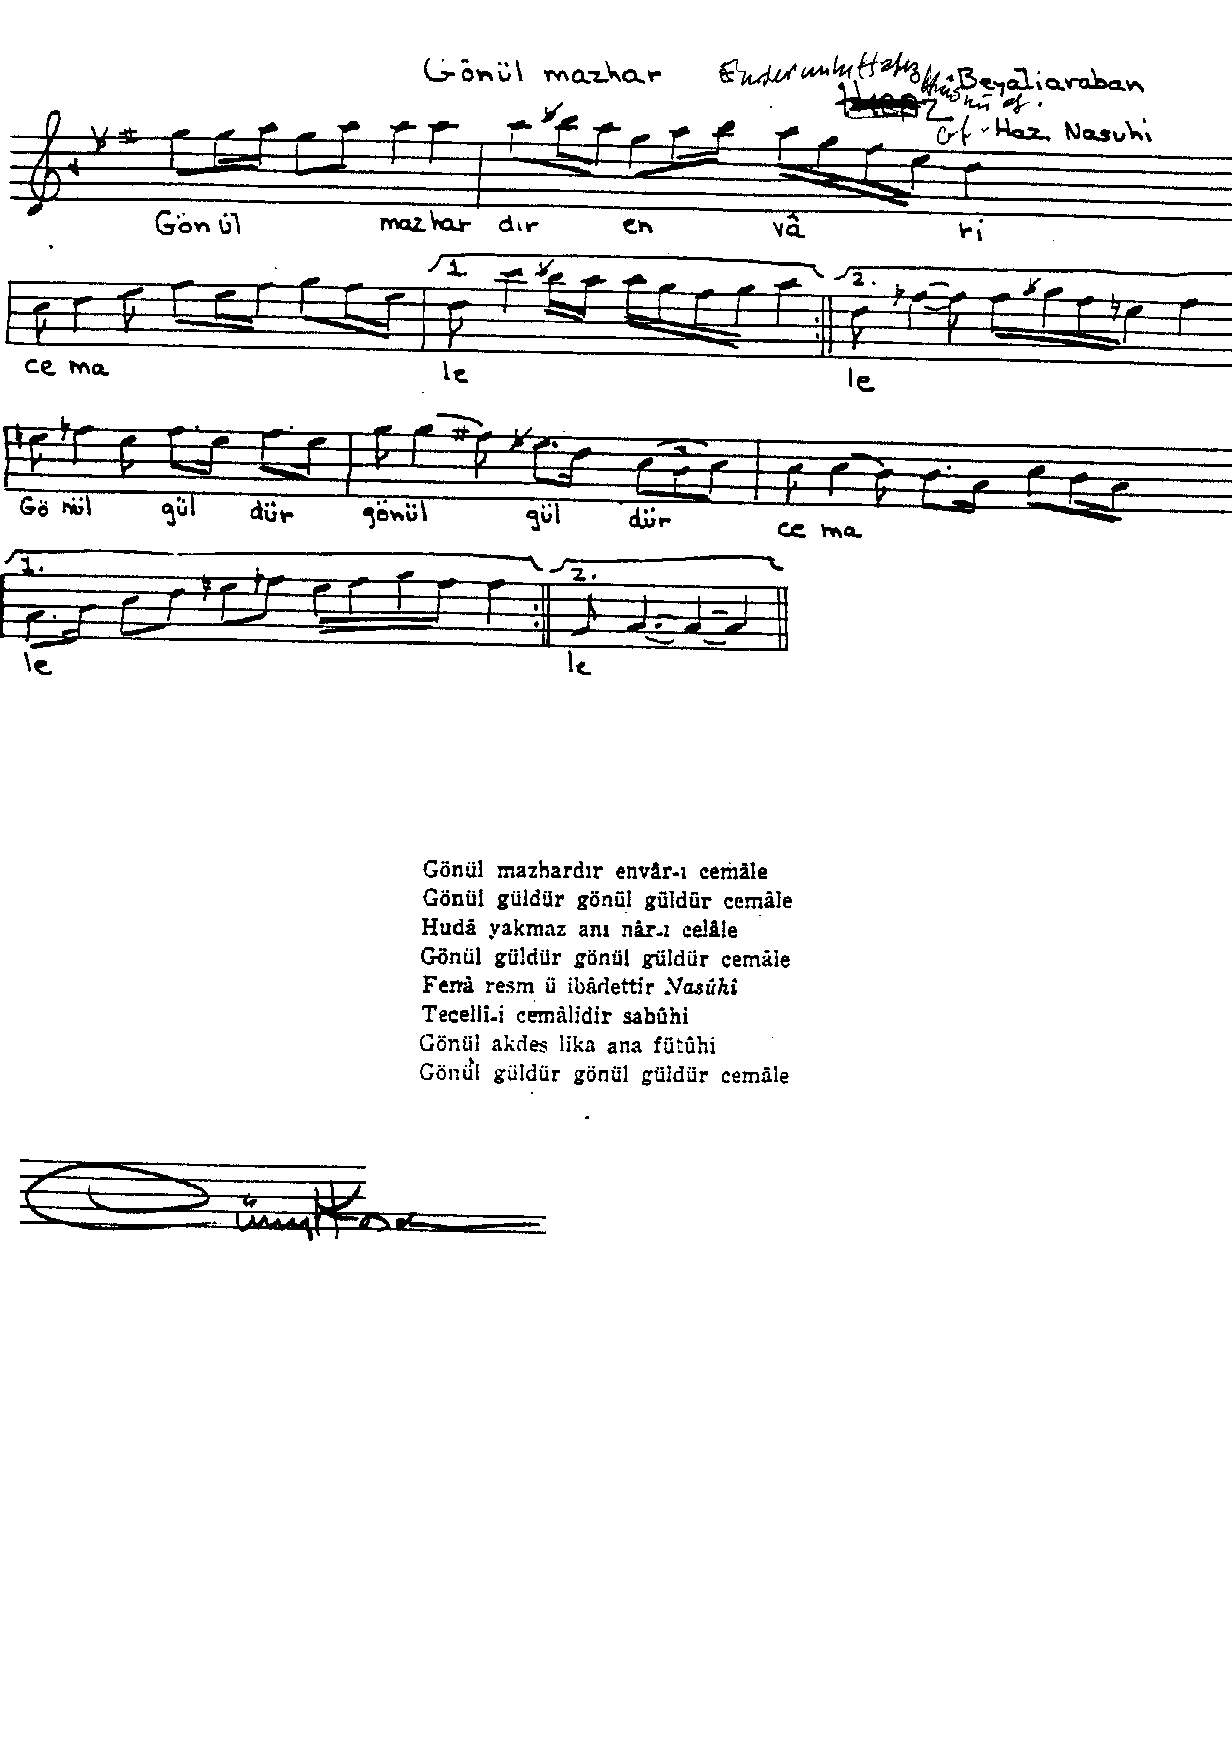 Gönül mazhar
Beyatiaraban
Gf - Haz. Nasuhi
Gönül mazhar dır en vâ ri
1. 2.
ce ma le le
Gö nül gül dür gönül gül dür ce ma
3
1. 2.
le le
Gönül mazhardır envâr-ı cemâle
Gönül güldür gönül güldür cemâle
Hudâ yakmaz anı nâr-ı celâle
Gönül güldür gönül güldür cemâle
Fenâ resm ü ibâdettir Nasûhî
Tecellî-i cemâlidir sabûhi
Gönül akdes lika ana fütûhi
Gönül güldür gönül güldür cemâle